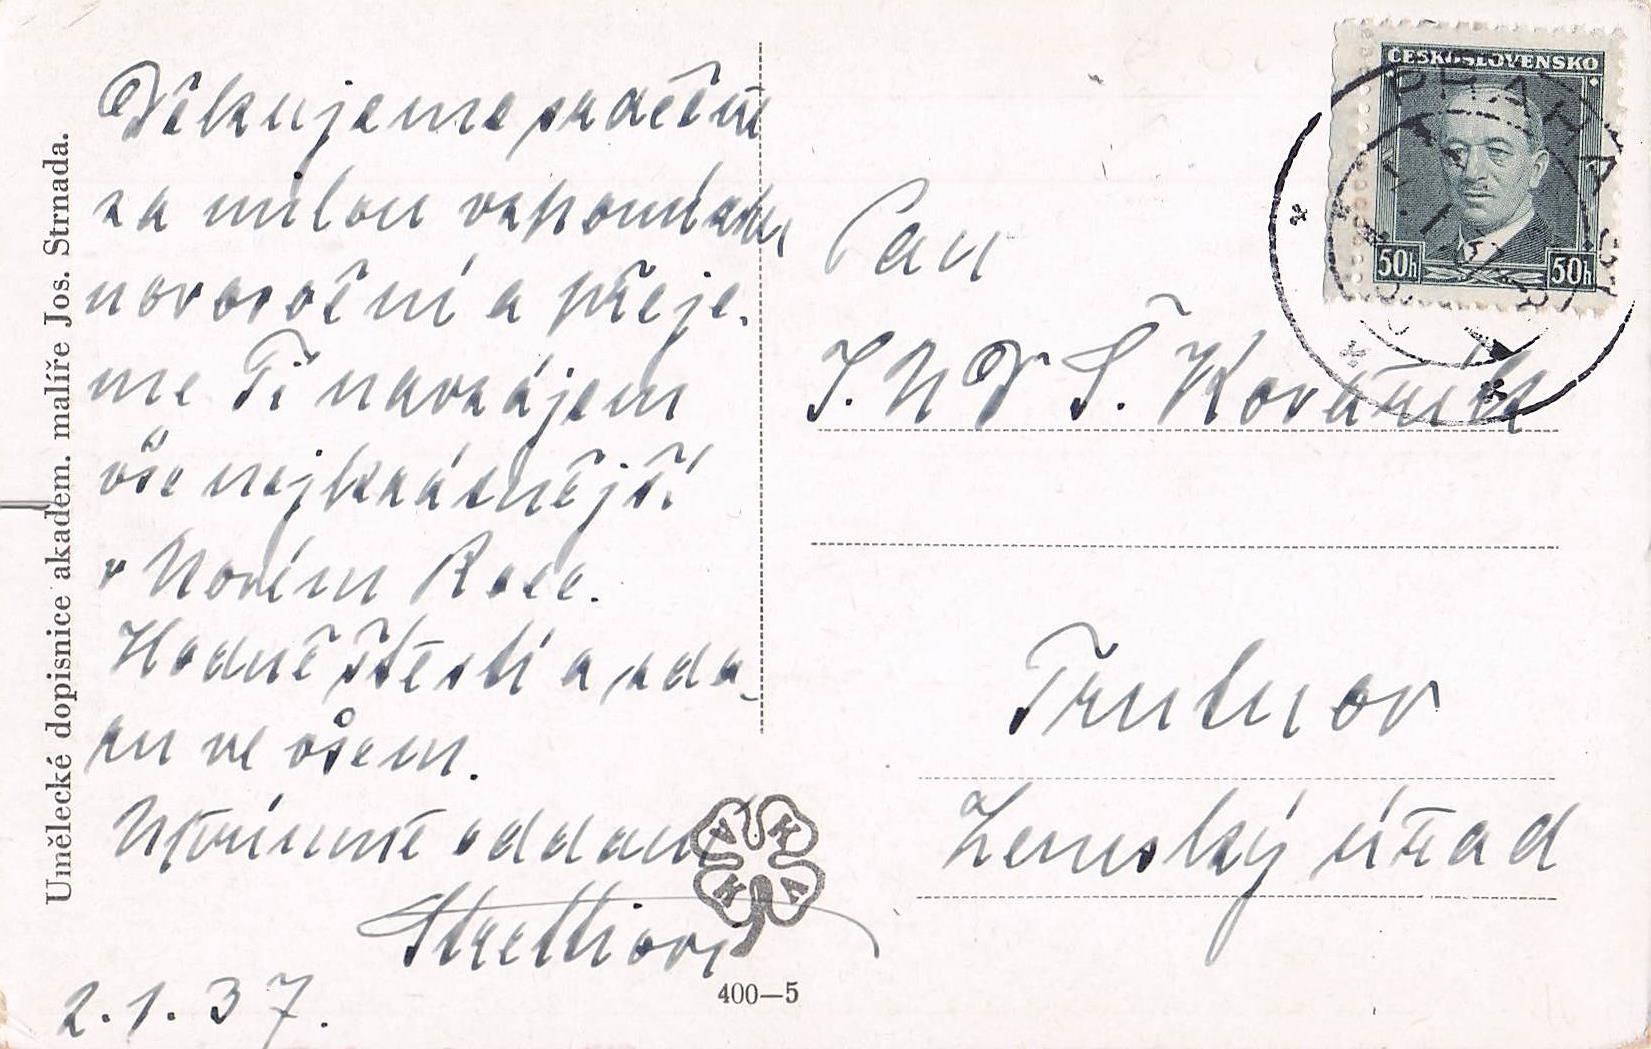 Umělecké dopisnice akadem. malíře Jos. Strnada.
Děkujeme srdečně
za milou vzpomínku
novoroční a přeje-
me Ti navzájem
vše nejkrásnější
v Novém Roce.
Hodně štěstí a zda-
ru ve všem.
Upřímně oddaní
Strettiovi
2.1.37.
400—5
ČESKOSLOVENSKO
50h 50h
PRAHA
Pan
J. U. Dr Š. Kovářík
Trutnov
Zemský úřad